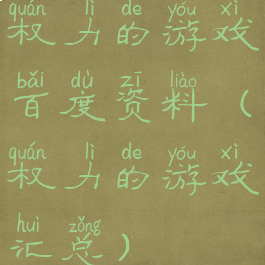 quán lì de yóu xì
权力的游戏
bǎi dù zī liào
百度资料（
quán lì de yóu xì
权力的游戏
huì zǒng
汇总）